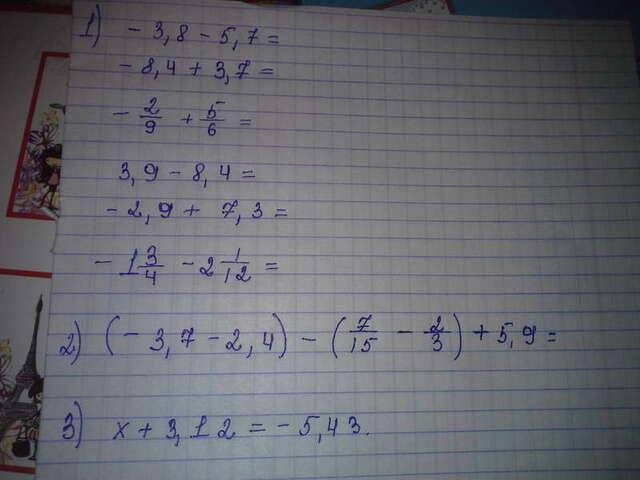 1) - 3,8 - 5,7 =
- 8,4 + 3,7 =
- 2/9 + 5/6 =
3,9 - 8,4 =
- 2,9 + 7,3 =
- 1 3/4 - 2 1/12 =
2) (- 3,7 - 2,4) - (7/15 - 2/3) + 5,9 =
3) x + 3,12 = - 5,43.